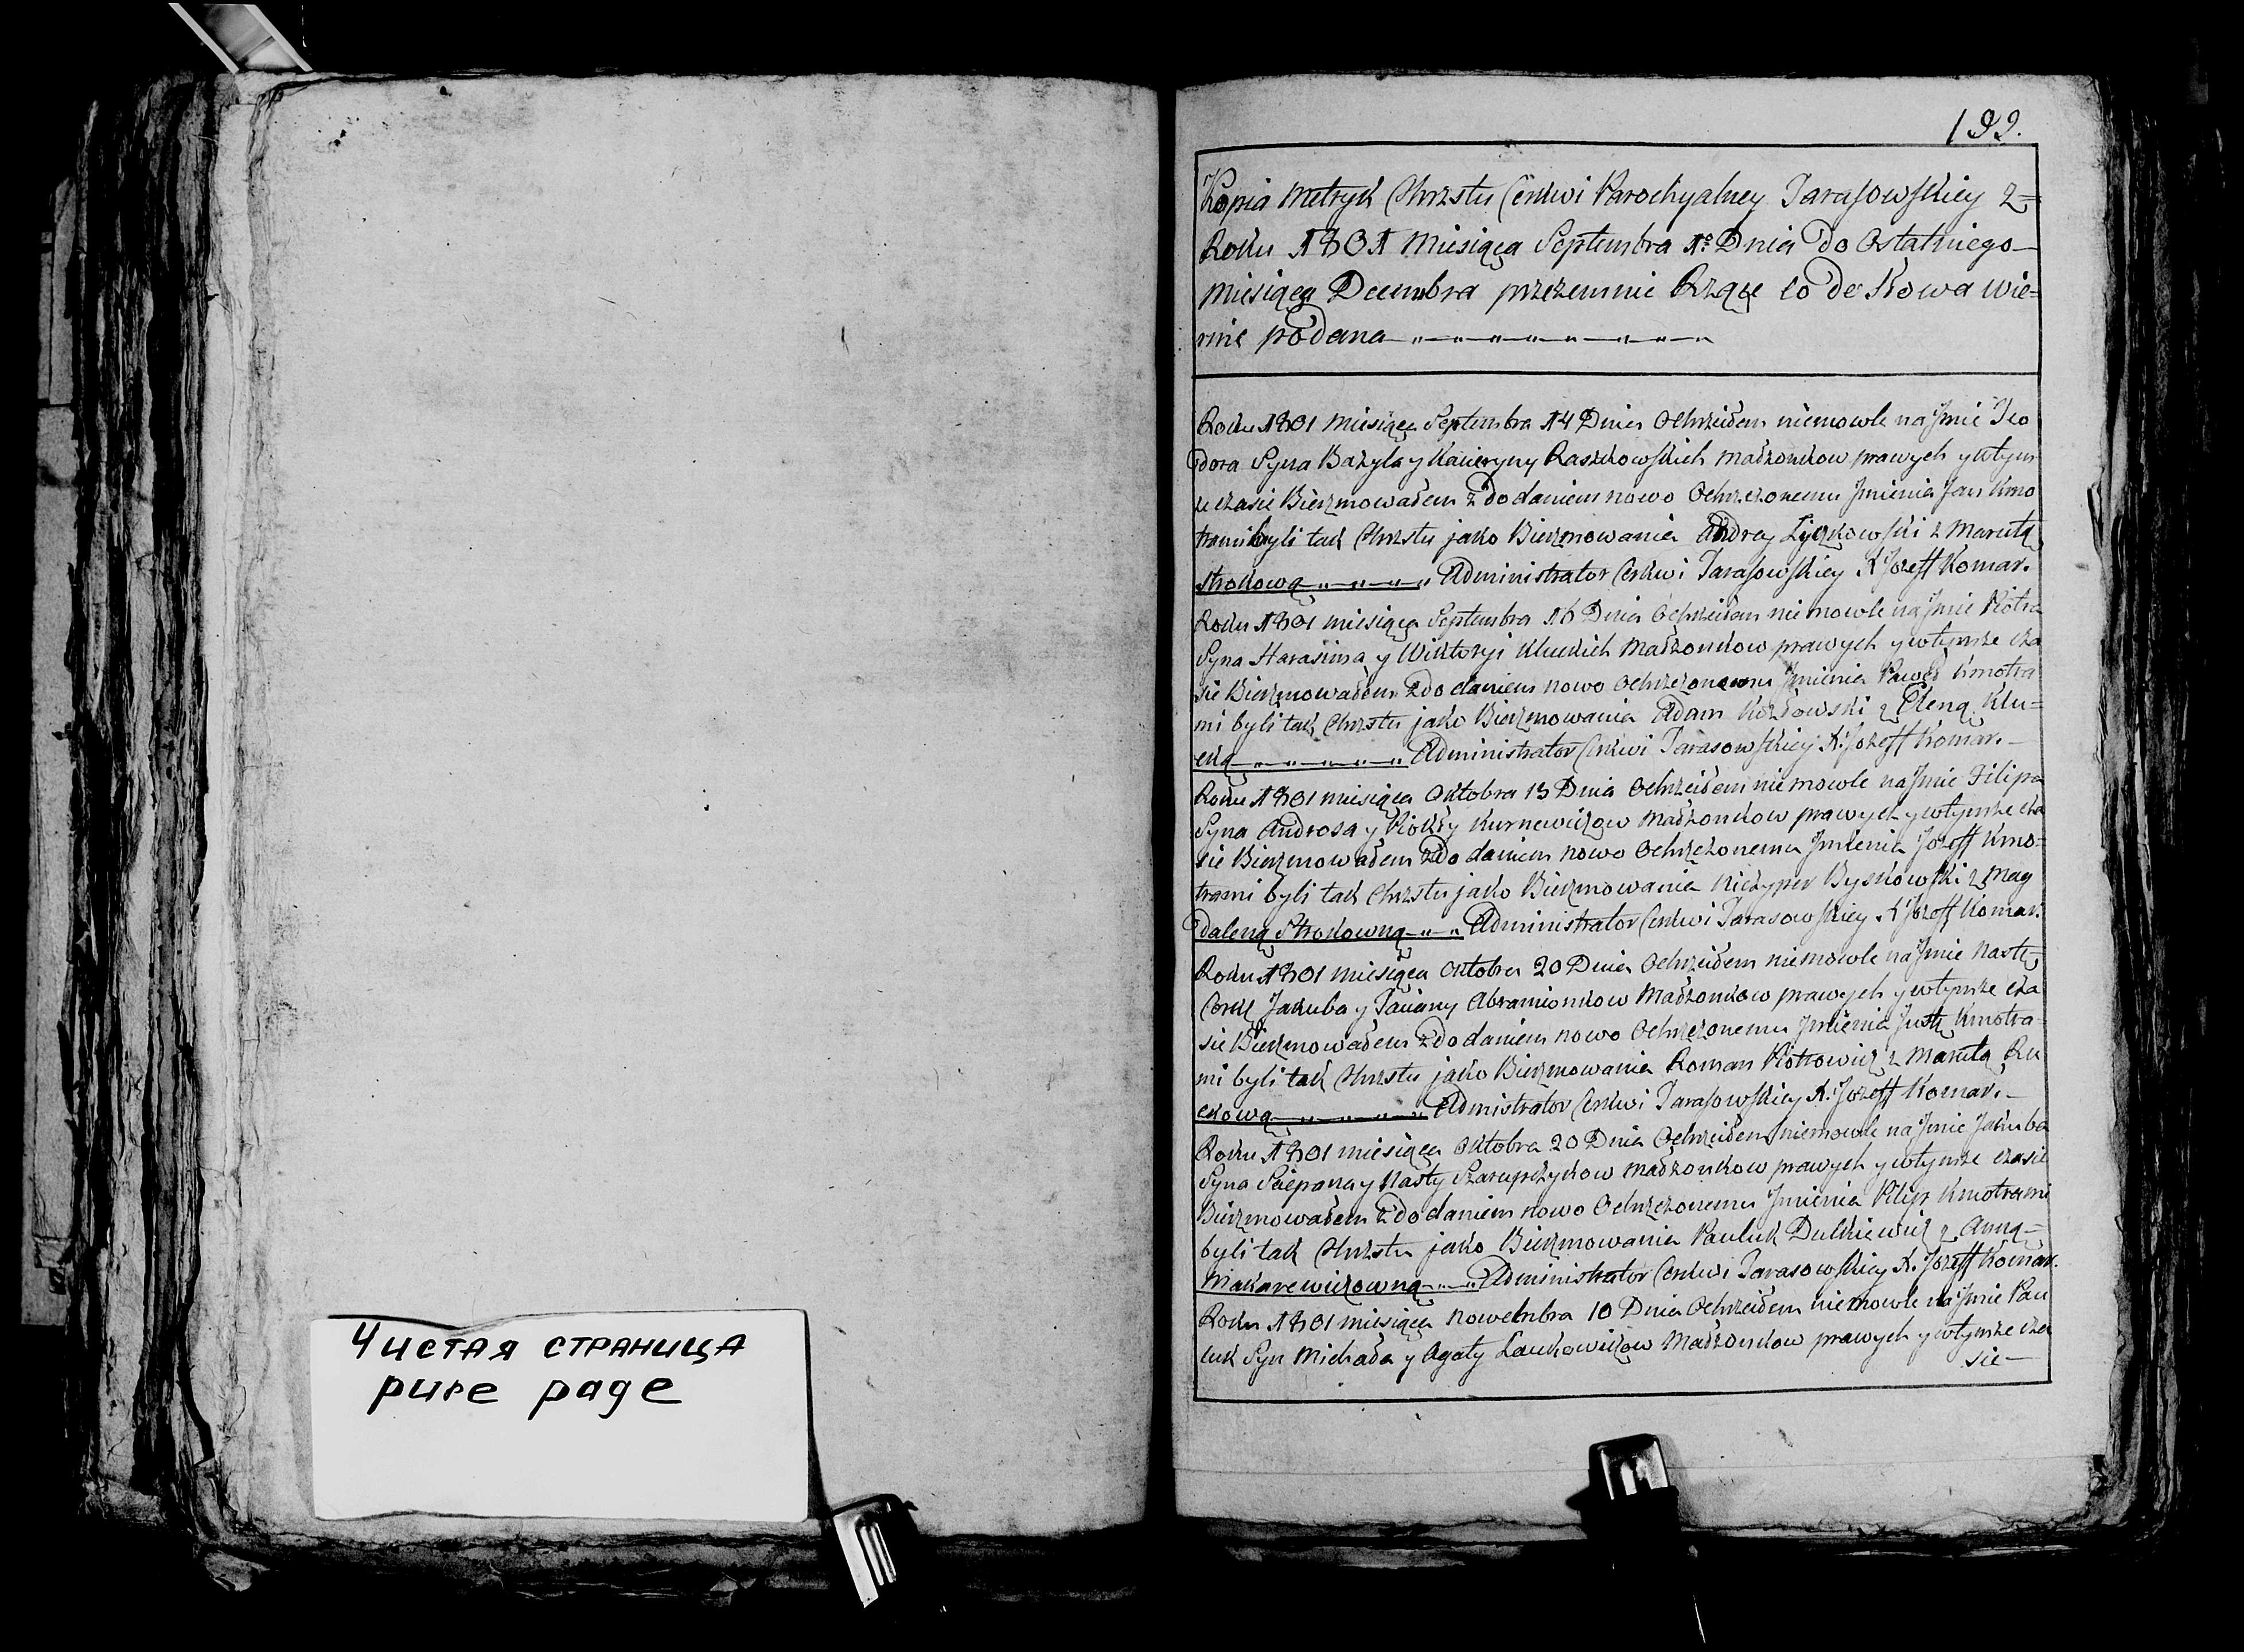 Чистая страница
pure page
199.
Kopia Metryk Chrzstu Cerkwi Parochyalney Tarasowskiey z=
Roku 1801 Miesiąca Septembra 1º Dnia Do Ostatniego
Miesiąca Decembra przezemnie Rząc co de Słowa wie=
rnie podana
Roku 1801 Miesiąca Septembra 14 Dnia Ochrzciłem niemowle na Jmie Teo
dora Syna Bazyla y Kacieryny Raszkowskich Małżonkow prawych y wtym
że czasie Bierzmowałem z dodaniem nowo Ochrzczonemu Jmienia Jan Kmo
trami byli tak Chrzstu jako Bierzmowania Andrey Zyczkowski z Marutą
Strokową Administrator Cerkwi Tarasowskiey X Jozeff Komar.
Roku 1801 miesiąca Septembra 16 Dnia Ochrzciłem niemowle na Jmie Piotra
Syna Harasima y Wiktoryi Kluckich Małżonkow prawych y wtymże cza
sie Bierzmowałem z dodaniem nowo Ochrzczonemu Jmienia Paweł Kmotra
mi byli tak Chrzstu jako Bierzmowania Adam Kozłowski z Eleną Klu=
cką Administrator Cerkwi Tarasowskiey X. Jozeff Komar.
Roku 1801 miesiąca Oktobra 13 Dnia Ochrzciłem niemowle na Jmie Filipa
Syna Androsa y Kurnewiczow Małżonkow prawych y wtymże cza
sie Bierzmowałem z dodaniem nowo Ochrzczonemu Jmienia Jozeff Kmo=
trami byli tak Chrzstu jako Bierzmowania Kiczyper Byskowski z Mag
daleną Strokowną Administrator Cerkwi Tarasowskiey X Jozeff Komar.
Roku 1801 miesiąca Oktobra 20 Dnia Ochrzciłem niemowle na Jmie Nastę
Corkę Jakuba y Taciany Abramionkow Małżonkow prawych y wtymże cza
sie Bierzmowałem z dodaniem nowo Ochrzczonemu Jmienia Justę Kmotra=
mi byli tak Chrzstu jako Bierzmowania Roman Piotrowicz z Marutą Ru
ckową Admistrator Cerkwi Tarasowskiey X. Jozeff Komar.
Roku 1801 miesiąca Oktobra 20 Dnia Ochrzciłem niemowle na Jmie Jakuba
Syna Sciepana y Nasty Małżonkow prawych y wtymże czasie
Bierzmowałem z dodaniem nowo Ochrzczonemu Jmienia Filip Kmotrami
byli tak Chrzstu jako Bierzmowania Pauluk Dulkiewicz z Anną=
Makarewiczowną Administrator Cerkwi Tarasowskiey X. Jozeff Komar.
Roku 1801 miesiąca Nowembra 10 Dnia Ochrzciłem niemowle na Jmie Pau
luk Syn Michała y Agaty Małżonkow prawych y wtymże cza
sie